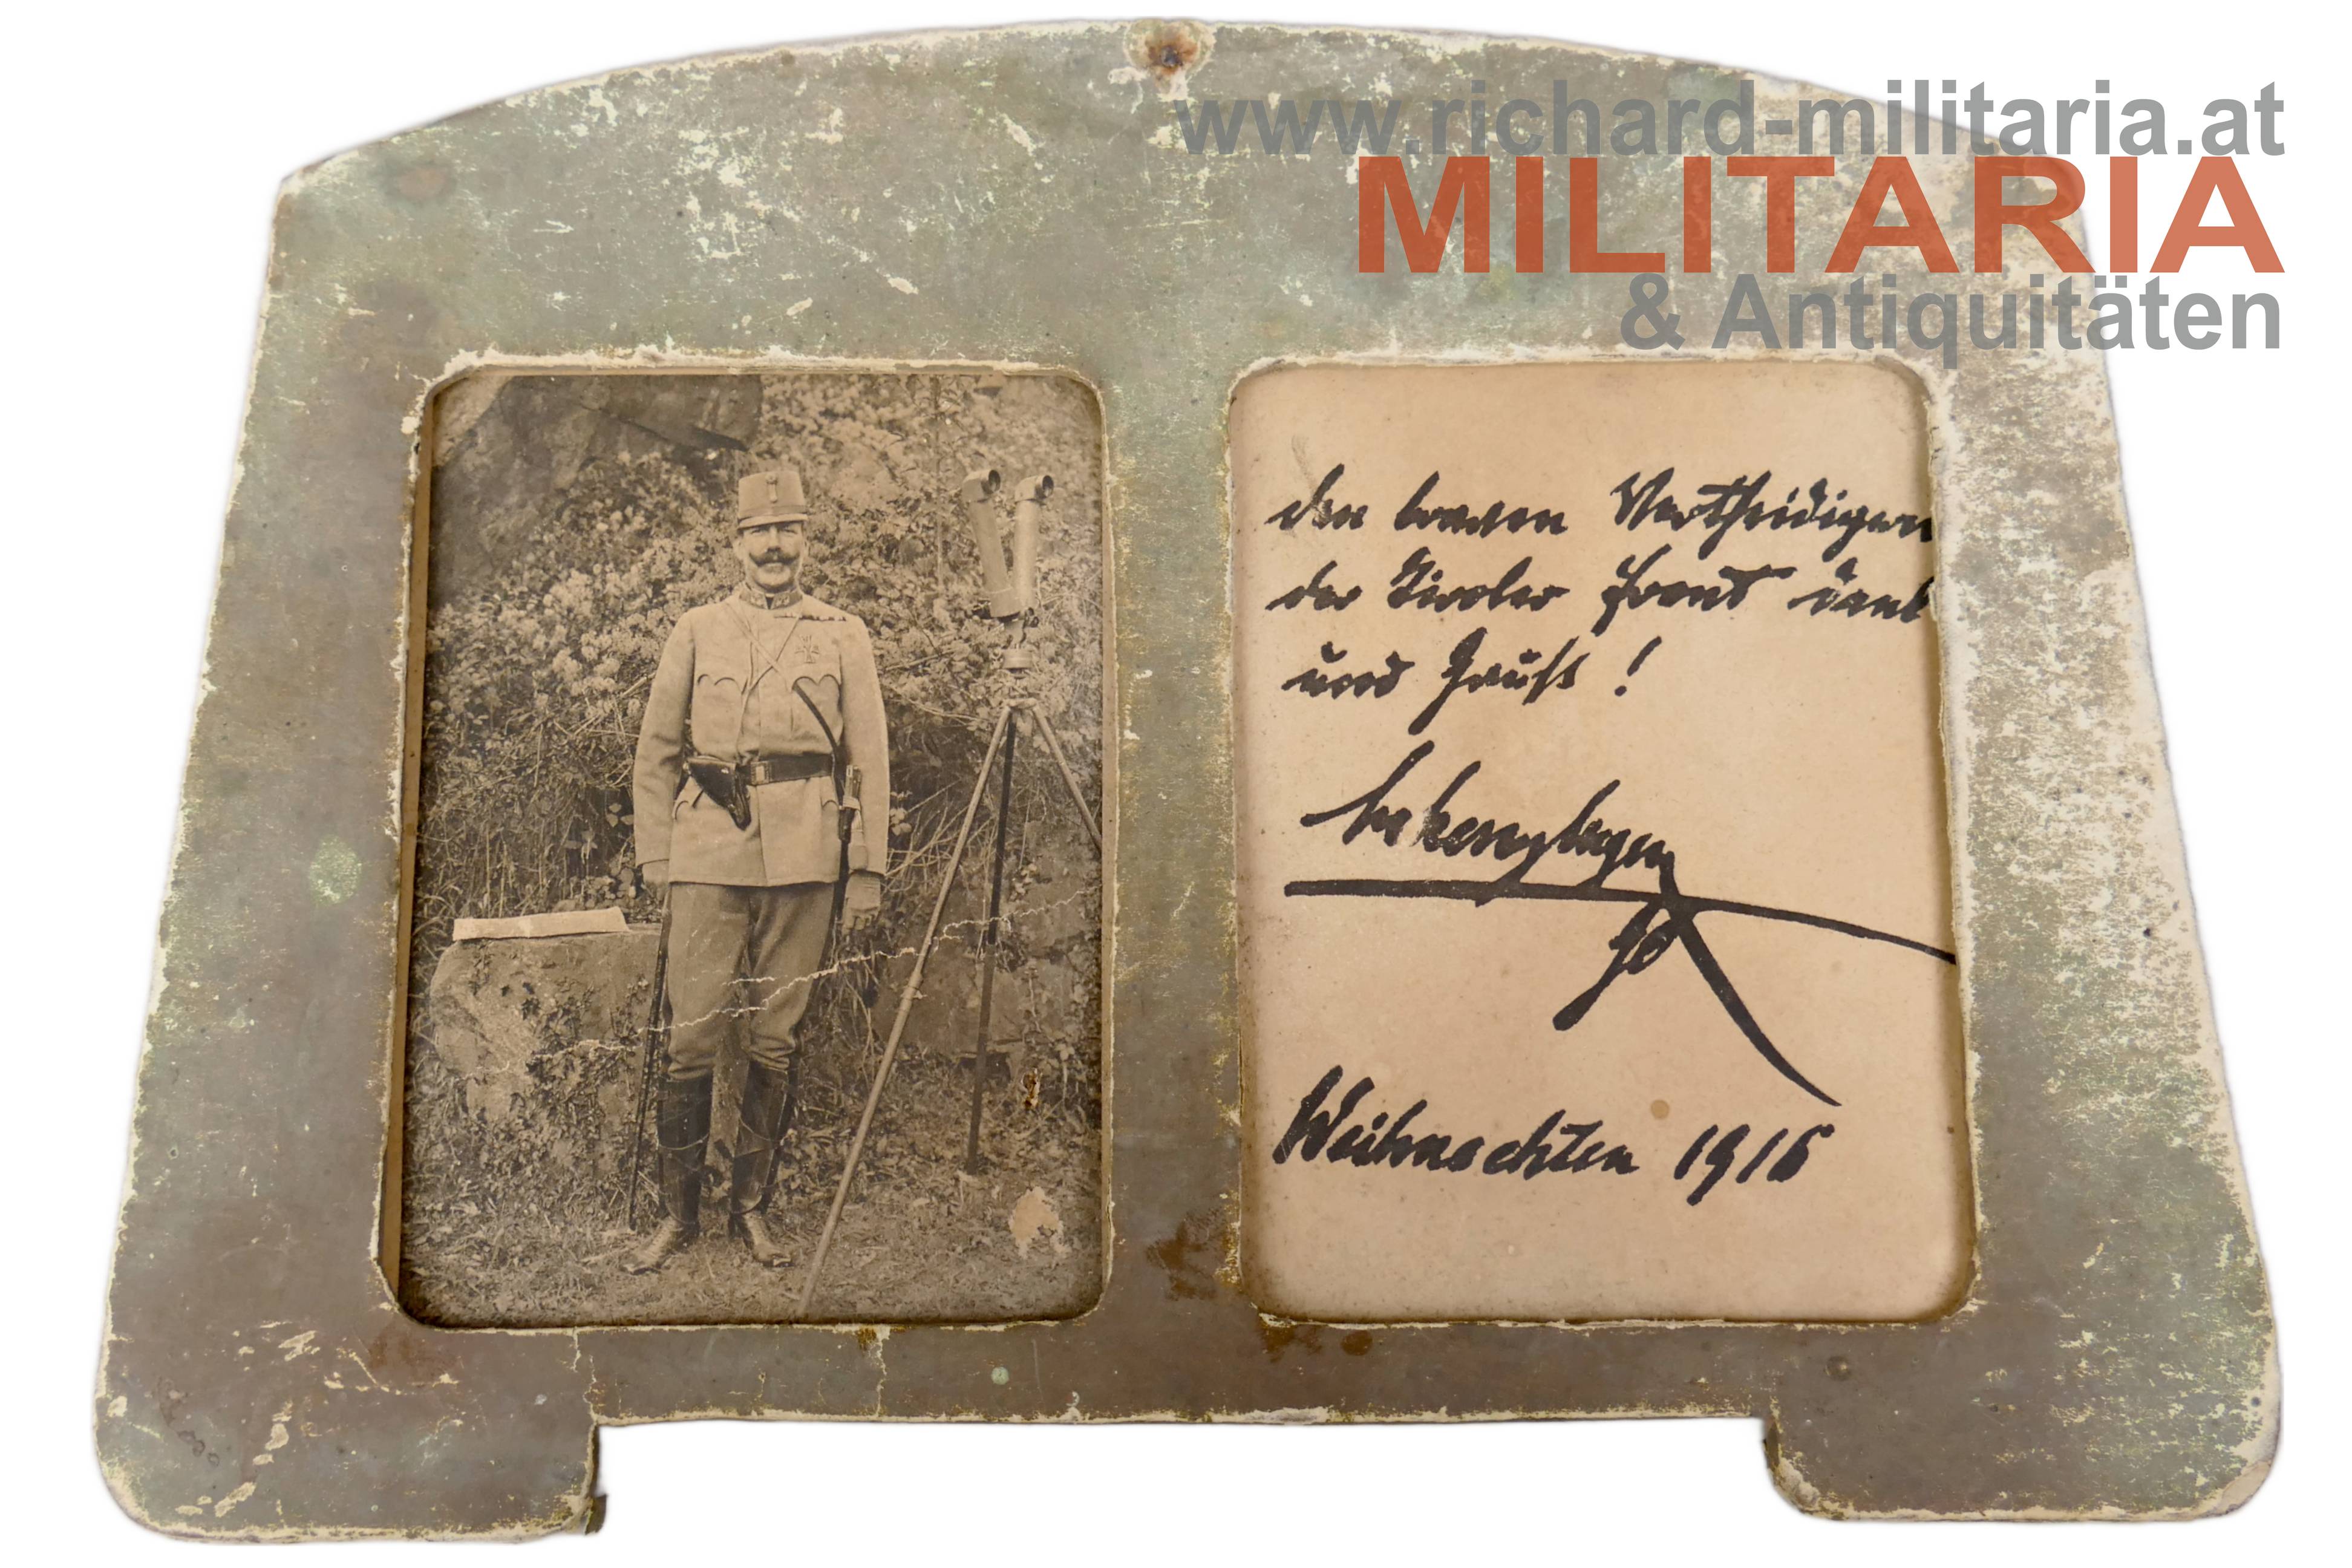 www.richard-militaria.at
MILITARIA
& Antiquitäten
den braven Vertheidigern
der Tiroler Front dank
und Gruß!
Weihnachten 1916